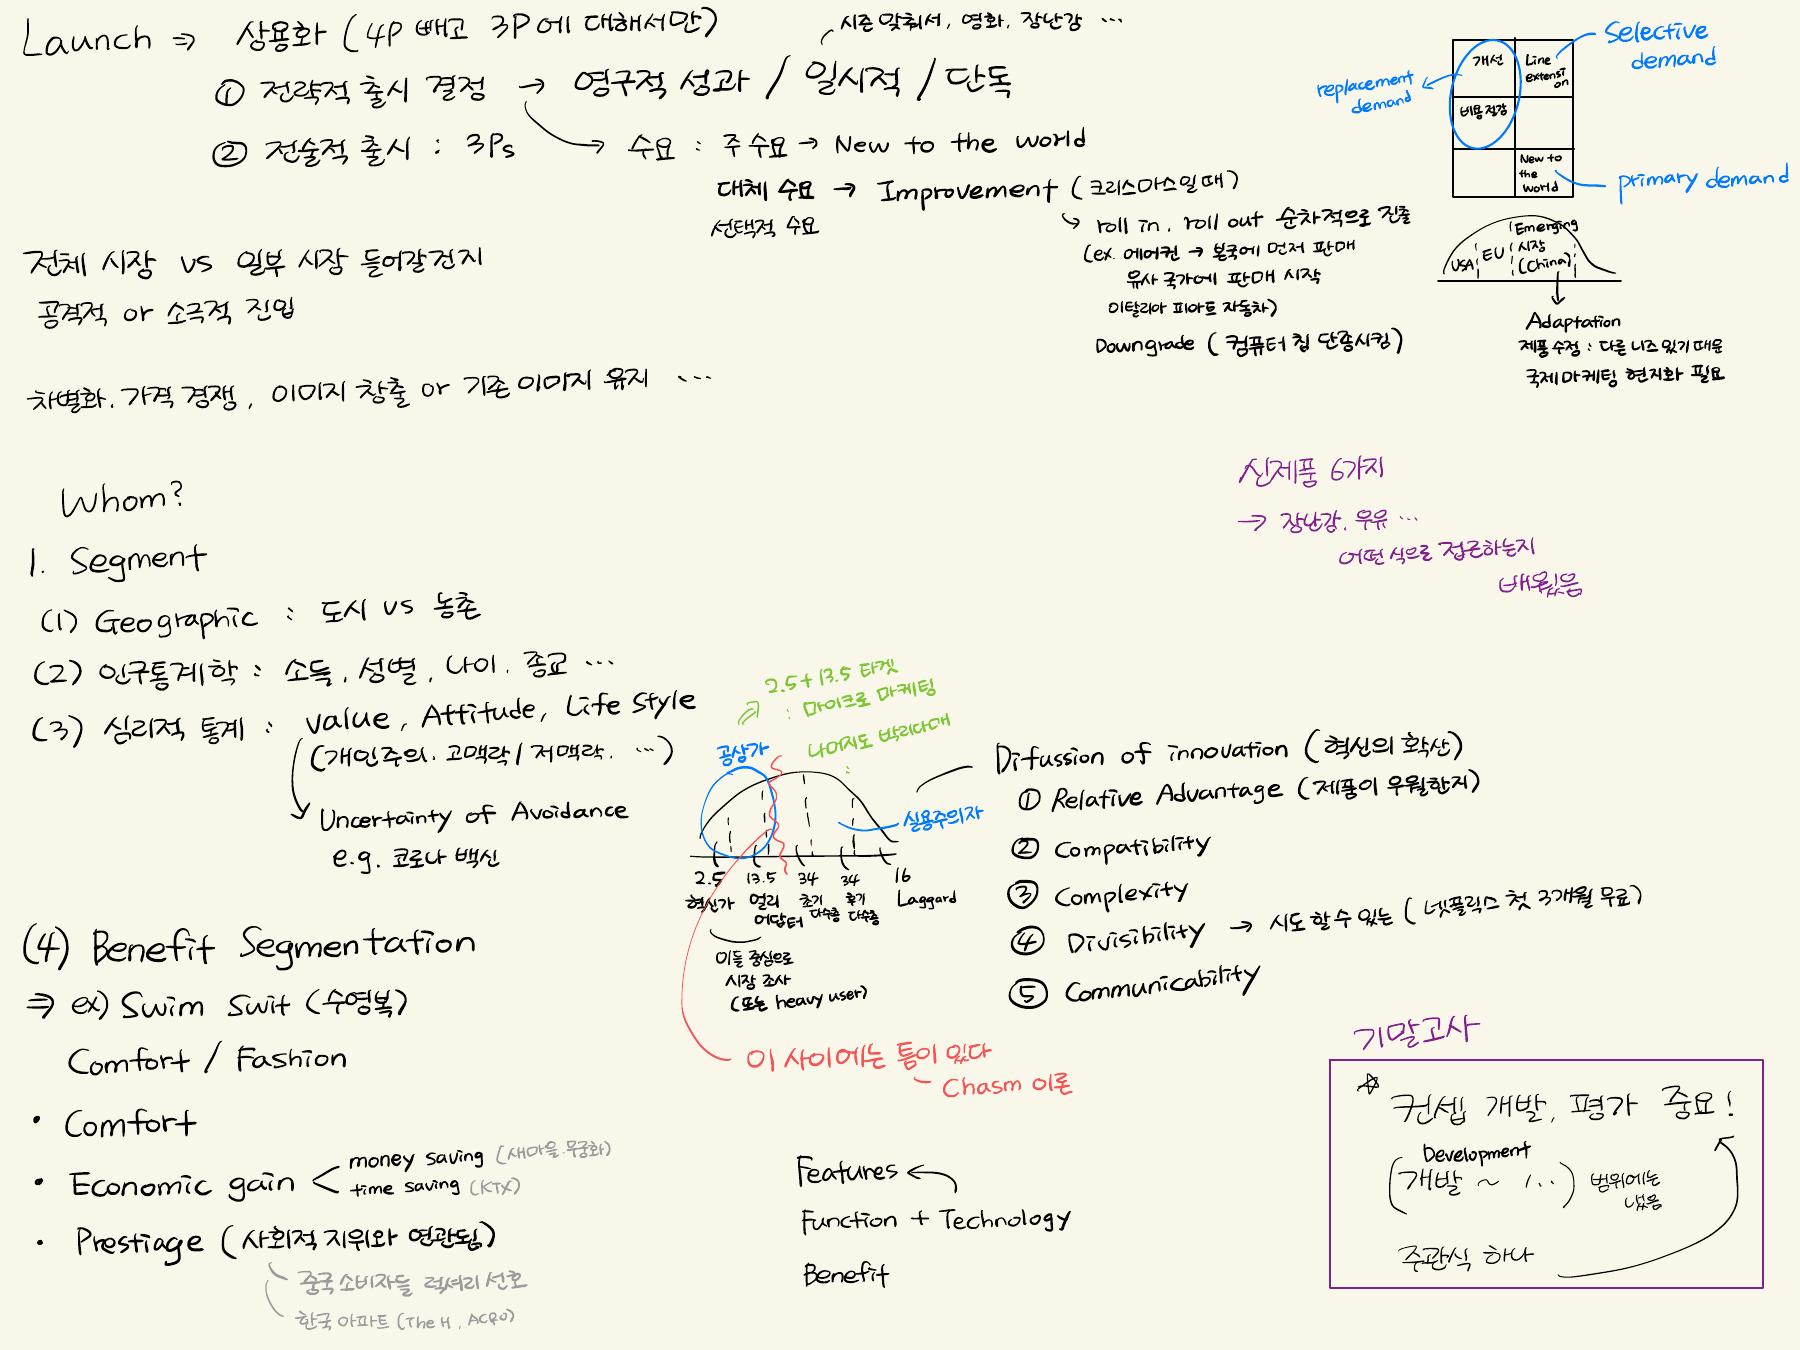 Launch ⇒ 상용화 (4P 빼고 3P에 대해서만)
시즌 맞춰서, 영화, 장난감 …
① 전략적 출시 결정 → 영구적 성과 / 일시적 / 단독
② 전술적 출시 : 3Ps
수요 : 주 수요 → New to the world
대체 수요 → Improvement (크리스마스일 때)
선택적 수요
↳ roll in, roll out 순차적으로 진출
(ex. 에어컨 → 본국에 먼저 판매
유사 국가에 판매 시작
이탈리아 피아트 자동차)
Downgrade (컴퓨터 칩 단종시킴)
replacement demand
개선
Line extension
비용절감
New to the world
Selective demand
primary demand
USA
EU
Emerging 시장 (China)
Adaptation
제품 수정 : 다른 니즈 있기 때문
국제 마케팅 현지화 필요
전체 시장 vs 일부 시장 들어갈건지
공격적 or 소극적 진입
차별화, 가격 경쟁, 이미지 창출 or 기존 이미지 유지 …
신제품 6가지
→ 장난감, 우유 …
어떤 식으로 접근하는지
배웠음
Whom?
1. Segment
(1) Geographic : 도시 vs 농촌
(2) 인구통계학 : 소득, 성별, 나이, 종교 …
(3) 심리적 통계 : value, Attitude, Life Style
(개인주의, 고맥락 / 저맥락, …)
Uncertainty of Avoidance
e.g. 코로나 백신
2.5 + 13.5 타겟
: 마이크로 마케팅
나머지도 박리다매
공상가
실용주의자
2.5 13.5 34 34 16
혁신가 얼리 어답터 초기 다수층 후기 다수층 Laggard
이들 중심으로
시장 조사
(또는 heavy user)
이 사이에는 틈이 있다
Chasm 이론
Difussion of innovation (혁신의 확산)
① Relative Advantage (제품이 우월한지)
② Compatibility
③ Complexity
④ Divisibility → 시도 할 수 있는 (넷플릭스 첫 3개월 무료)
⑤ Communicability
(4) Benefit Segmentation
⇒ ex) Swim Swit (수영복)
Comfort / Fashion
• Comfort
• Economic gain < money saving (새마을 무궁화)
time saving (KTX)
• Prestiage (사회적 지위와 연관됨)
중국 소비자들 럭셔리 선호
한국 아파트 (The H, ACRO)
Features ←
Function + Technology
Benefit
기말고사
☆ 컨셉 개발, 평가 중요!
Development
(개발 ~ 1…) 범위에는
넣음
주관식 하나